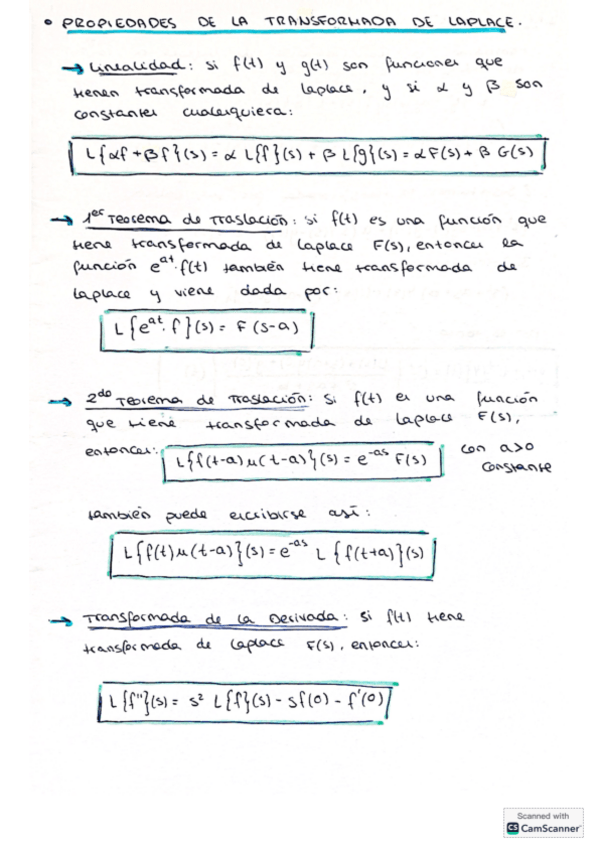 • PROPIEDADES DE LA TRANSFORMADA DE LAPLACE.
→ Linealidad: si f(t) y g(t) son funciones que
tienen transformada de Laplace, y si α y β son
constantes cualesquiera:
L{αf + βf}(s) = α L{f}(s) + β L{g}(s) = α F(s) + β G(s)
→ 1er Teorema de Traslación: si f(t) es una función que
tiene transformada de Laplace F(s), entonces la
función e^at · f(t) también tiene transformada de
Laplace y viene dada por:
L{e^at · f}(s) = F(s-a)
→ 2do Teorema de Traslación: Si f(t) es una función
que tiene transformada de Laplace F(s),
entonces: L{f(t-a)μ(t-a)}(s) = e^-as F(s) con a>0
constante
también puede escribirse así:
L{f(t)μ(t-a)}(s) = e^-as L{f(t+a)}(s)
→ Transformada de la Derivada: Si f(t) tiene
transformada de Laplace F(s), entonces:
L{f''}(s) = s² L{f}(s) - sf(0) - f'(0)
Scanned with
CS CamScanner